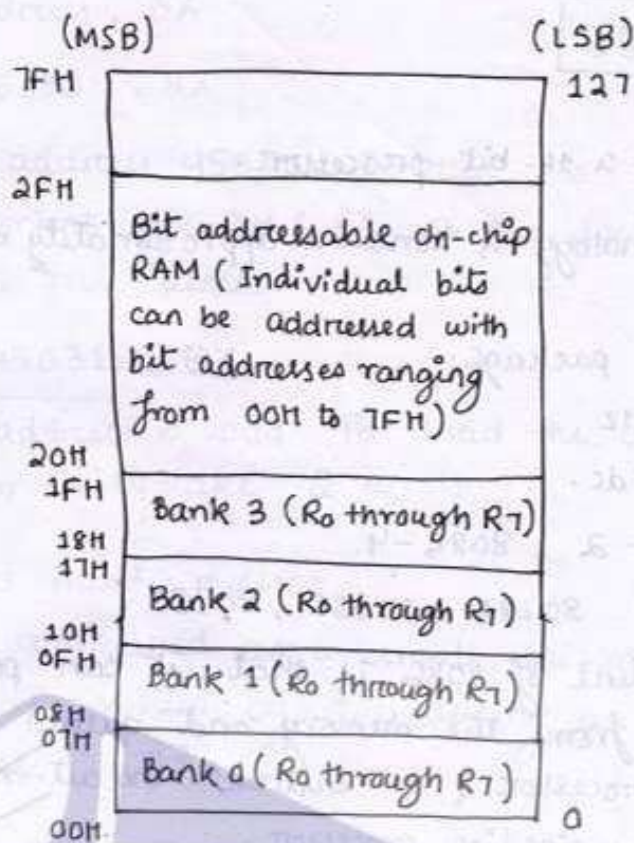 (MSB) (LSB)
7FH 127
2FH
Bit addressable on-chip
RAM ( Individual bits
can be addressed with
bit addresses ranging
from 00H to 7FH)
20H
1FH
Bank 3 (R0 through R7)
18H
17H
Bank 2 (R0 through R7)
10H
0FH
Bank 1 (R0 through R7)
08H
07H
Bank 0 (R0 through R7)
00H 0